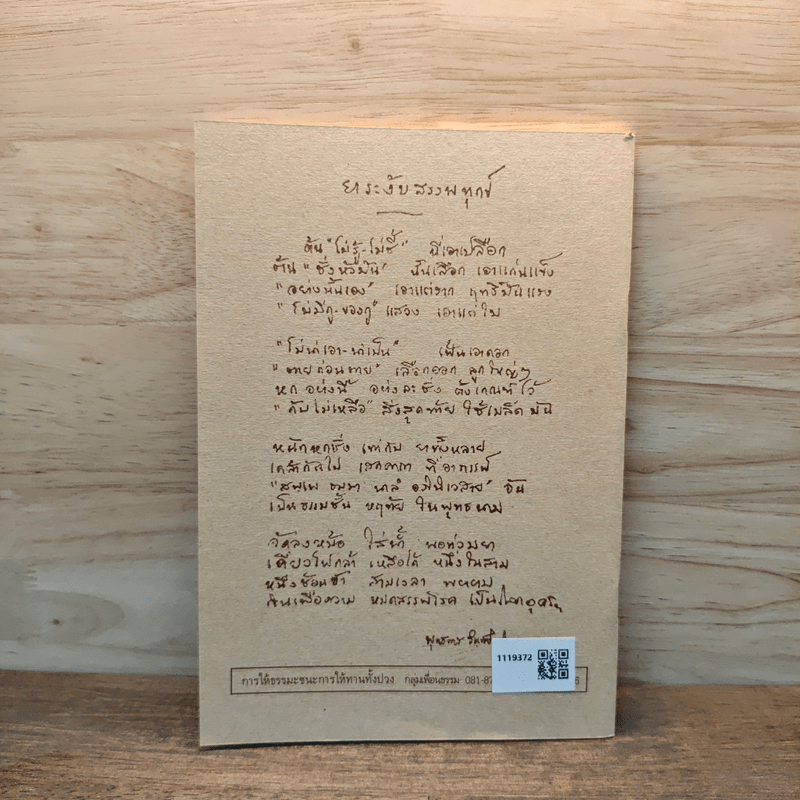 ยาระงับสรรพทุกข์
ต้น "ไม่รู้-ไม่ชี้" นี่เอาเปลือก
ต้น "ชั่งหัวมัน" นั้นเลือก เอาแก่นแข็ง
"อย่างนั้นเอง" เอาแต่ราก ฤทธิ์มันแรง
"ไม่มีกู-ของกู" แสวง เอาแต่ใบ
"ไม่น่าเอา-น่าเป็น" เฟ้นเอาดอก
"ตายก่อนตาย" เลือกออก ลูกใหญ่ๆ
หก อย่างนี้ อย่างละชั่ง ตั้งเกณฑ์ไว้
"ดับไม่เหลือ" สิ่งสุดท้าย ใช้เมล็ดมัน
หนักหกชั่ง เท่ากับ ยาทั้งหลาย
เคล้ากันไป เสกคาถา ที่อาถรรพ์
"สพฺเพ ธมฺมา นาลํ อภินิเวสาย" อัน
เป็นธรรมชั้น หฤทัย ในพุทธนาม
จัดลงหม้อ ใส่น้ำ พอท่วมยา
เคี่ยวไฟกล้า เหลือได้ หนึ่งในสาม
หนึ่งช้อนชา สามเวลา พยายาม
กินเพื่อความ หมดสรรพโรค เป็นโลกอุดร
พุทธทาส
1119372
การให้ธรรมะชนะการให้ทานทั้งปวง กลุ่มเพื่อนธรรม 081-8